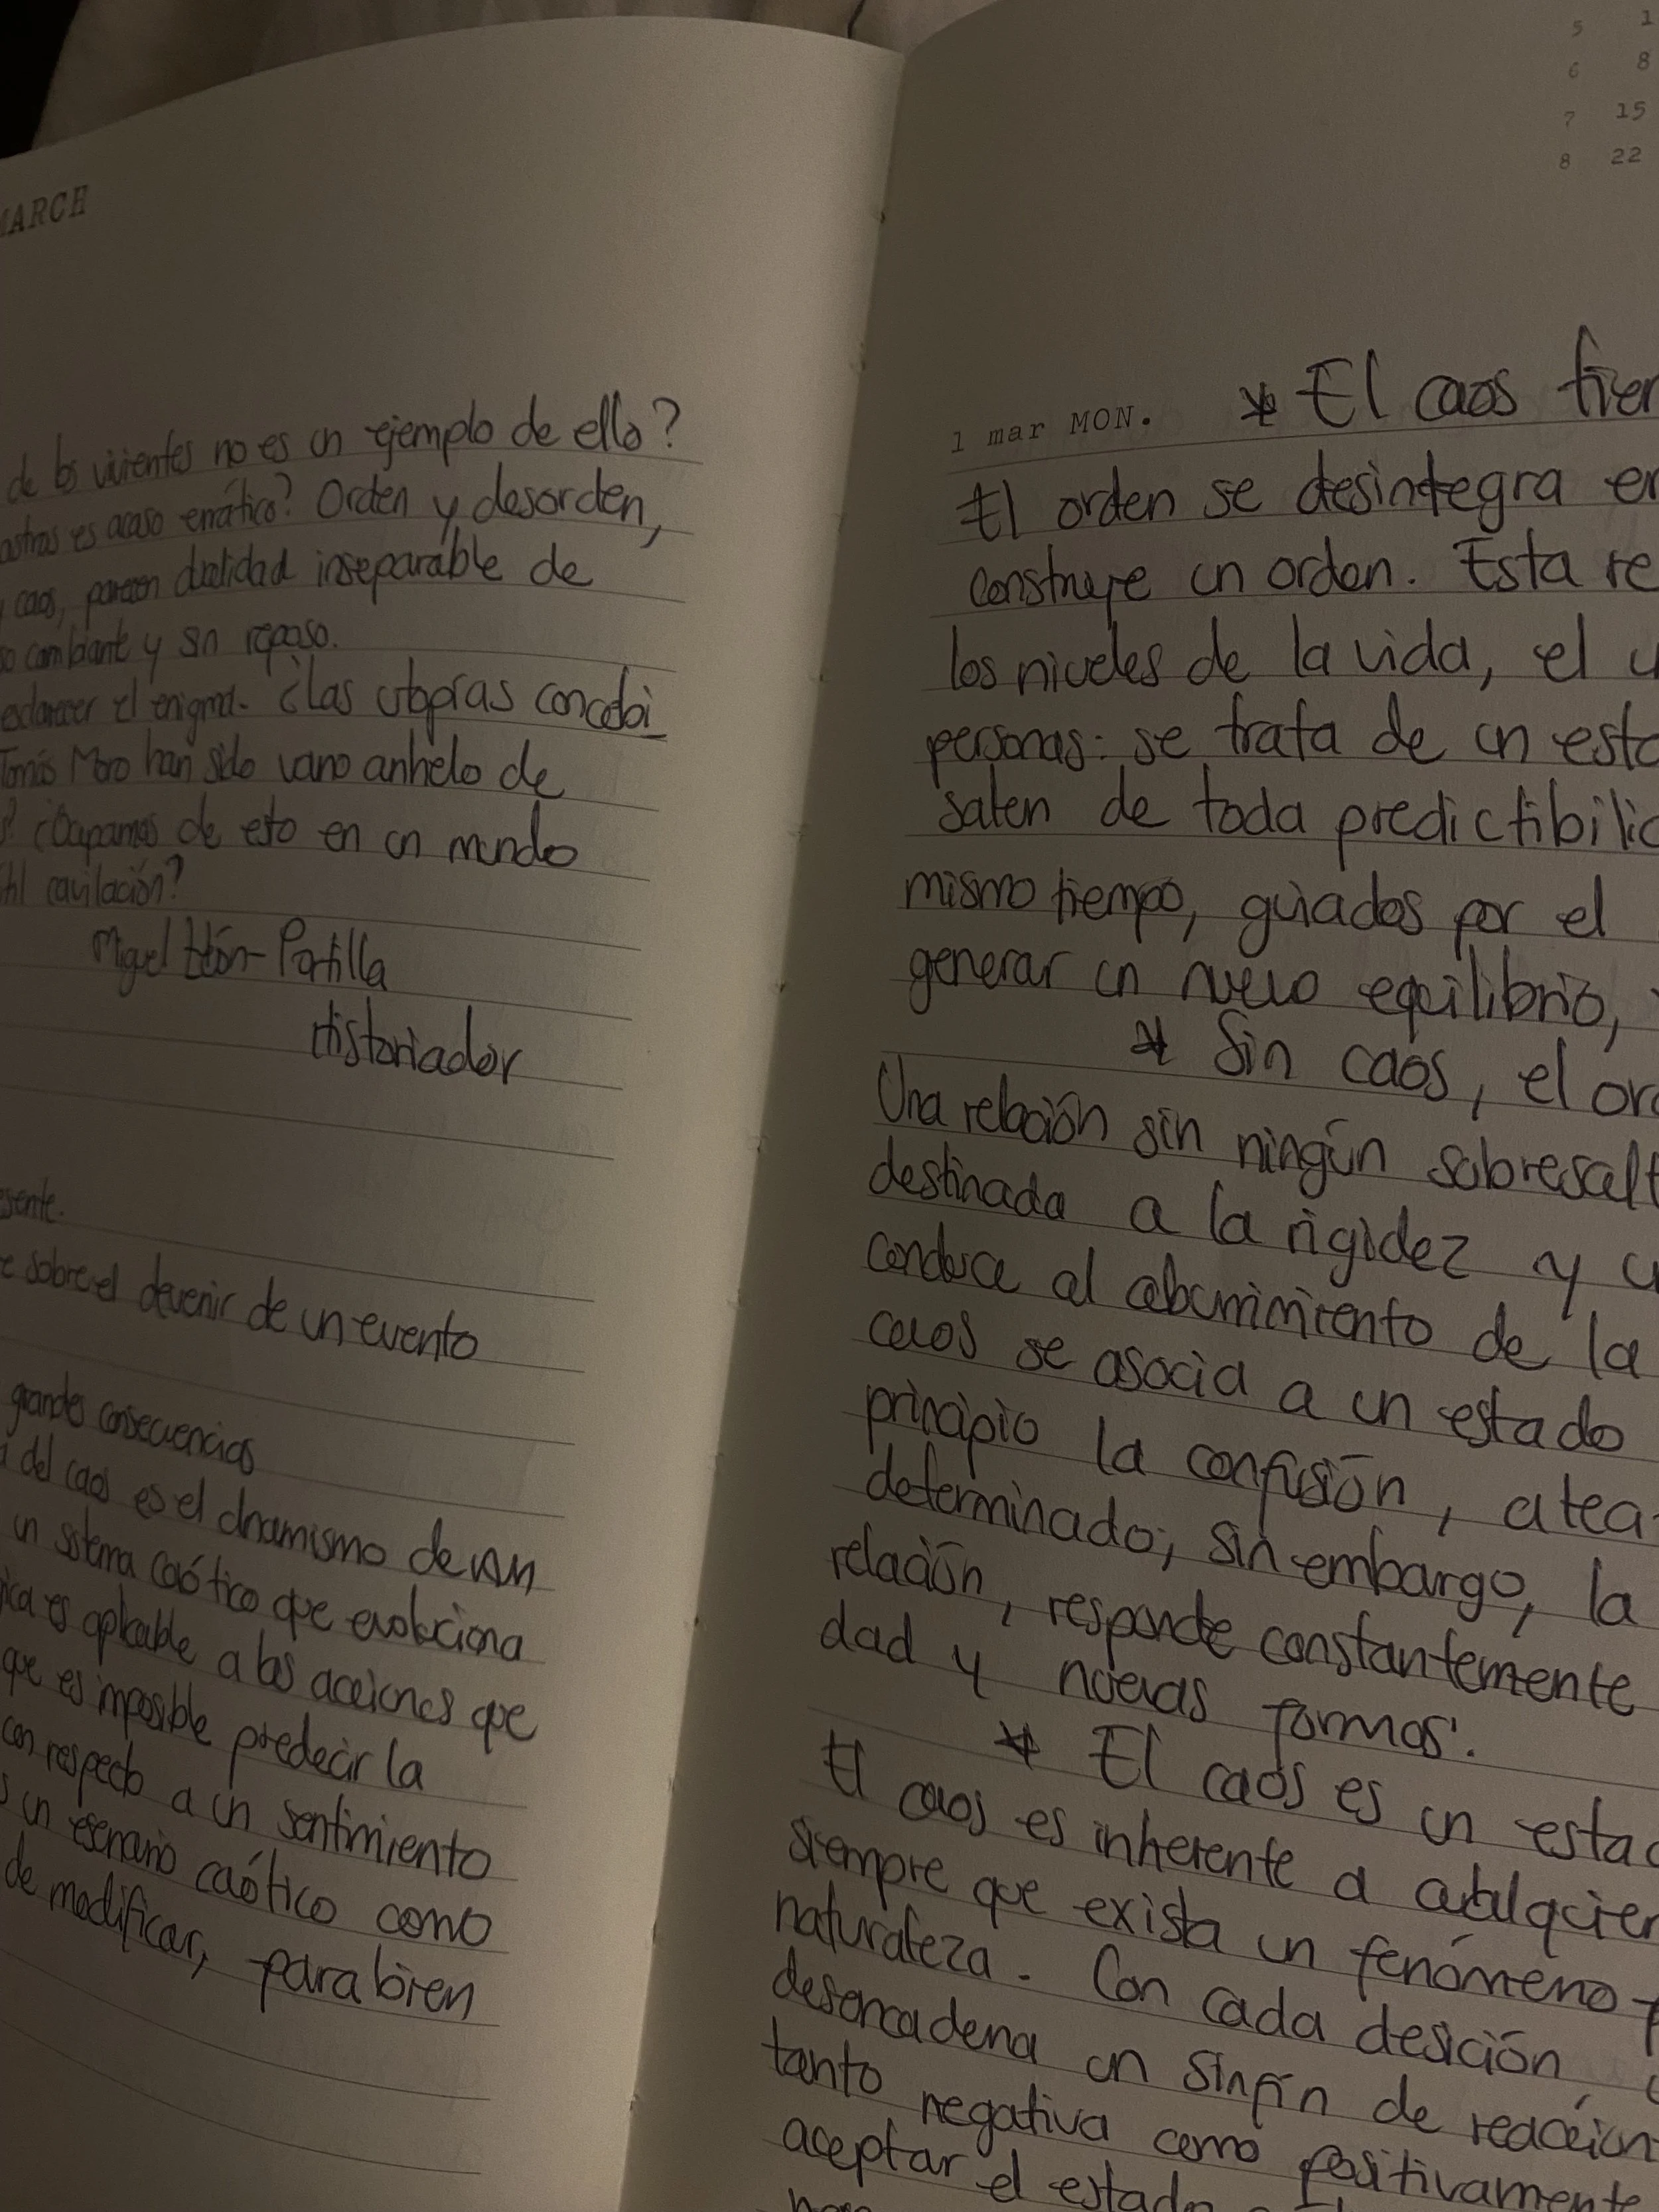 MARCH
de los vivientes no es un ejemplo de ello?
astros es acaso errático? Orden y desorden,
y caos, parecen dualidad inseparable de
so cambiante y sin reposo.
esclarecer el enigma. ¿Las utopías concebi
Tomás Moro han sido vano anhelo de
s? ¿Ocuparnos de esto en un mundo
útil cavilación?
Miguel León-Portilla
Historiador
esente.
e sobre el devenir de un evento
grandes consecuencias
a del caos es el dinamismo de un
un sistema caótico que evoluciona
ica es aplicable a las acciones que
que es imposible predecir la
con respecto a un sentimiento
s un escenario caótico como
de modificar, para bien
5 1
6 8
7 15
8 22
1 mar MON. * El caos tien
El orden se desintegra en
construye un orden. Esta re
los niveles de la vida, el u
personas: se trata de un esta
salen de toda predictibilid
mismo tiempo, guiados por el
generar un nuevo equilibrio,
* Sin caos, el ord
Una relación sin ningún sobresalt
destinada a la rigidez y u
conduce al aburrimiento de la
caos se asocia a un estado
principio la confusión, a tea
determinado; sin embargo, la
relación, responde constantemente
dad y nuevas formas.
* El caos es un estad
El caos es inherente a cualquier
siempre que exista un fenómeno
naturaleza. Con cada desición,
desencadena un sinfín de reaccion
tanto negativa como positivamente
aceptar el estado